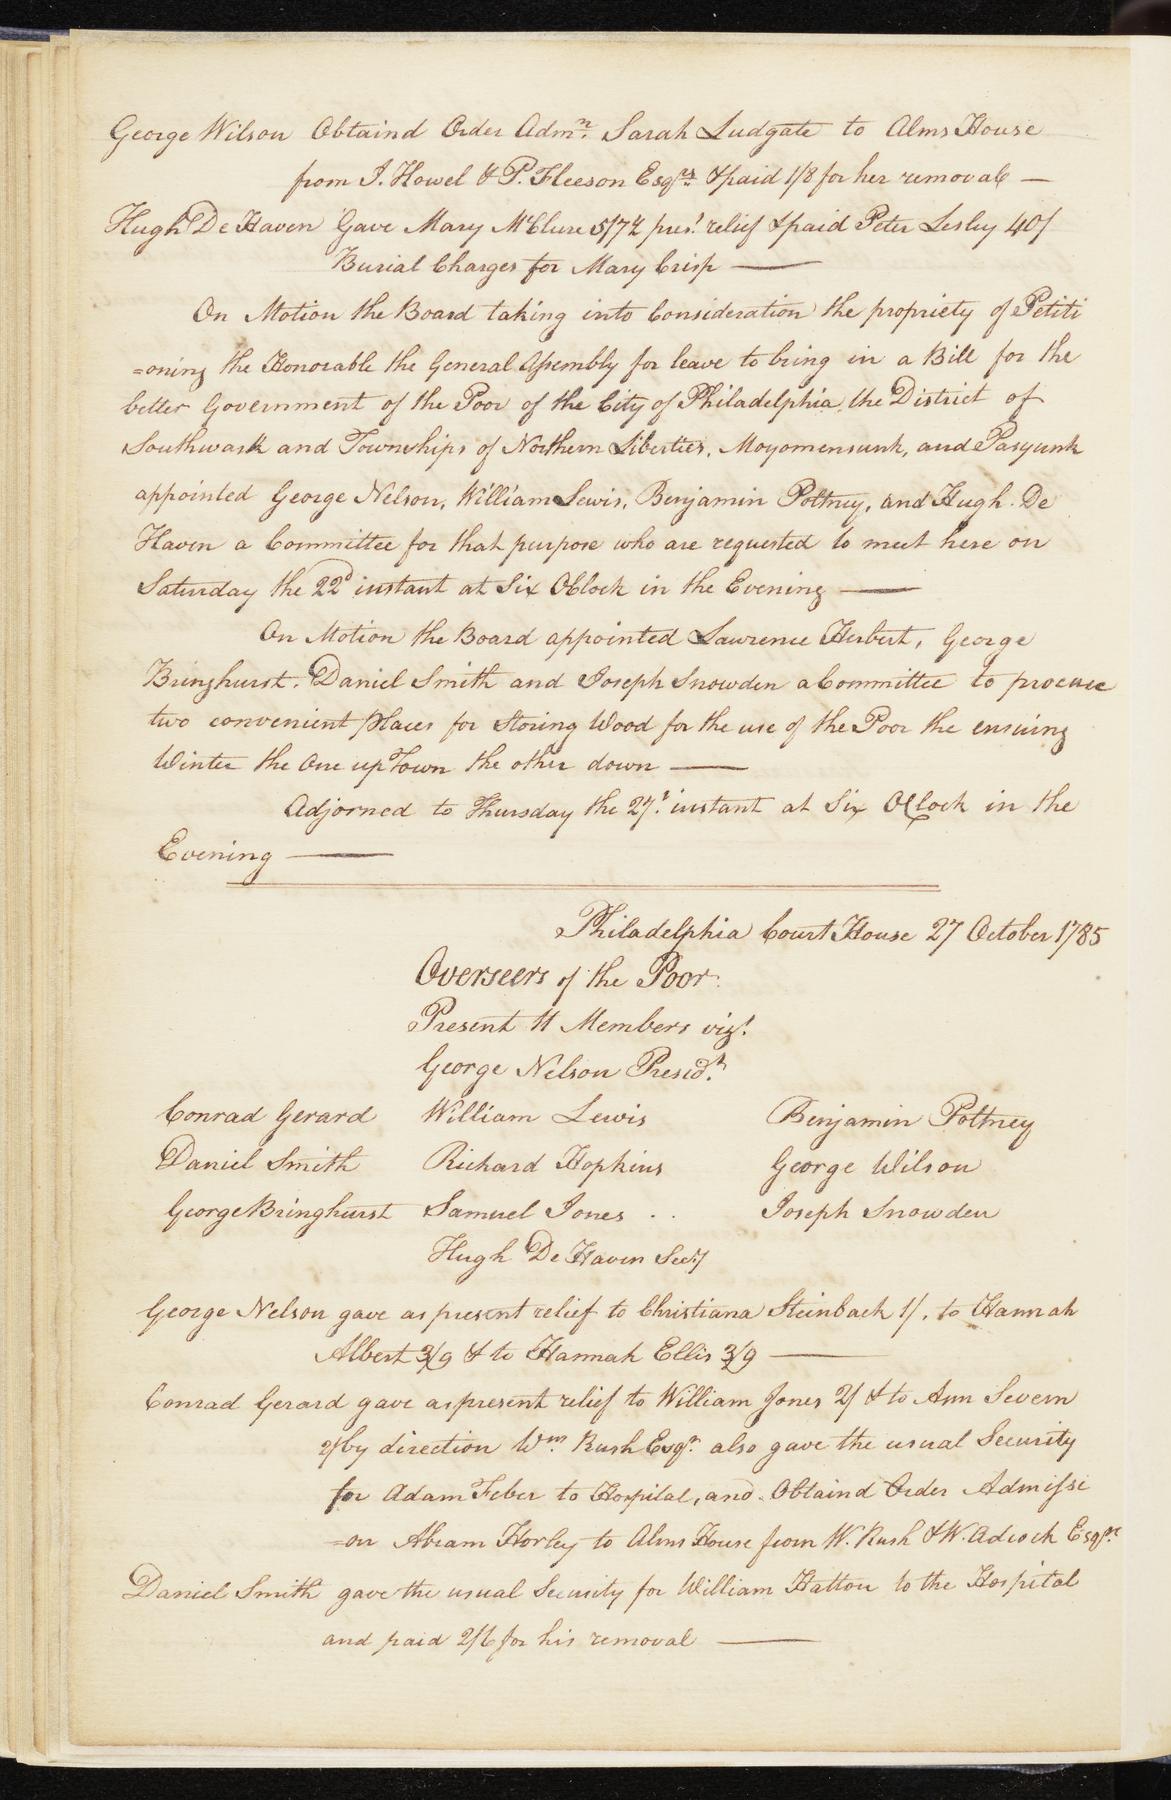 George Wilson Obtaind Order Admn. Sarah Ludgate to Alms House
from I. Howel & P. Fleeson Esqrs. & paid 1/8 for her removal —
Hugh De Haven Gave Mary McClure 5/7½ pres.t relief & paid Peter Lesley 40/
Burial Charges for Mary Crisp —
On Motion the Board taking into Consideration the propriety of Petiti
=oning the Honorable the General Assembly for leave to bring in a Bill for the
better Government of the Poor of the City of Philadelphia, the District of
Southwark and Townships of Northern Liberties, Moyomensunk, and Pasyunk
appointed George Nelson, William Lewis, Benjamin Poltney, and Hugh De
Haven a Committee for that purpose who are requested to meet here on
Saturday the 22d instant at Six OClock in the Evening —
On Motion the Board appointed Lawrence Herbert, George
Bringhurst, Daniel Smith and Joseph Snowden a Committee to procure
two convenient places for Storing Wood for the use of the Poor the ensuing
Winter the One up Town the other down —
Adjorned to Thursday the 27.t instant at Six OClock in the
Evening —
Philadelphia Court House 27 October 1785
Overseers of the Poor.
Present 11 Members viz.t
George Nelson Presid.t
Conrad Gerard William Lewis Benjamin Poltney
Daniel Smith Richard Hopkins George Wilson
George Bringhurst Samuel Jones . . Joseph Snowden
Hugh De Haven Sec.y
George Nelson gave as present relief to Christiana Steinback 1/. to Hannah
Albert 3/9 & to Hannah Ellis 3/9 —
Conrad Gerard gave as present relief to William Jones 2/ & to Ann Severn
2/ by direction Wm. Rush Esqr. also gave the usual Security
for Adam Feber to Hospital, and Obtaind Order Admissi
=on Abram Horley to Alms House from W. Rush & W. Adcock Esqrs.
Daniel Smith gave the usual Security for William Hatton to the Hospital
and paid 2/6 for his removal —